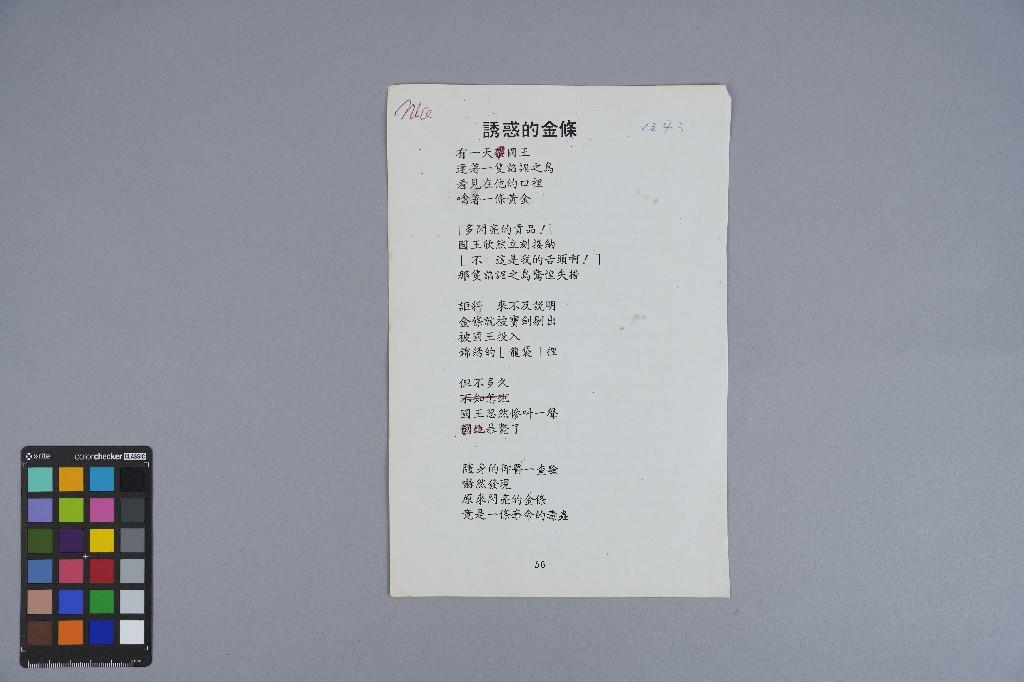 Nice
誘惑的金條
有一天國王
逢著一隻諂諛之鳥
看見在他的口裡
噙著一條黃金
「多閃亮的貢品!」
國王欣然立刻接納
「不 這是我的舌頭啊!」
那隻諂諛之鳥驚惶失措
詎料 來不及說明
金條就被寶劍剔出
被國王投入
錦綉的「龍袋」裡
但不多久
不知怎地
國王忽然慘叫一聲
暴斃了
隨身的御醫一查驗
赫然發現
原來閃亮的金條
竟是一條奪命的毒蟲
56
x-rite
colorchecker CLASSIC